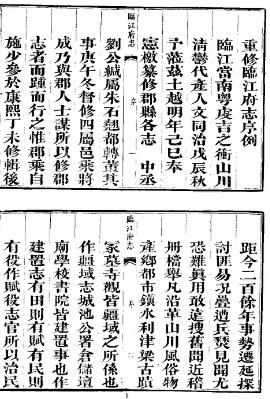 重修臨江府志序例
臨江當南粵虔吉之衝山川
清代產人文同治戊辰秋
予蒞茲土越明年己巳奉
憲檄纂修郡縣各志 中丞
臨江府志 序 一
劉公緘屬朱石翹都轉董其
事庚午冬督修四屬邑乘將
成乃與郡人士謀所以修郡
志者而踵而行之惟郡乘自
施少參於康熙丁未修輯後
距今二百餘年事勢遷延探
討匪易況疊遭兵燹見聞尤
恐難眞用敢遠搜舊聞近稽
册檔舉凡沿革山川風俗物
產鄉都市鎭水利津梁古蹟
臨江府志 序
冢墓寺觀皆疆域之所係也
作疆域志城池公署倉儲壇
廟學校書院皆建置事也作
建置志有田則有賦有民則
有役作賦役志官所以治民